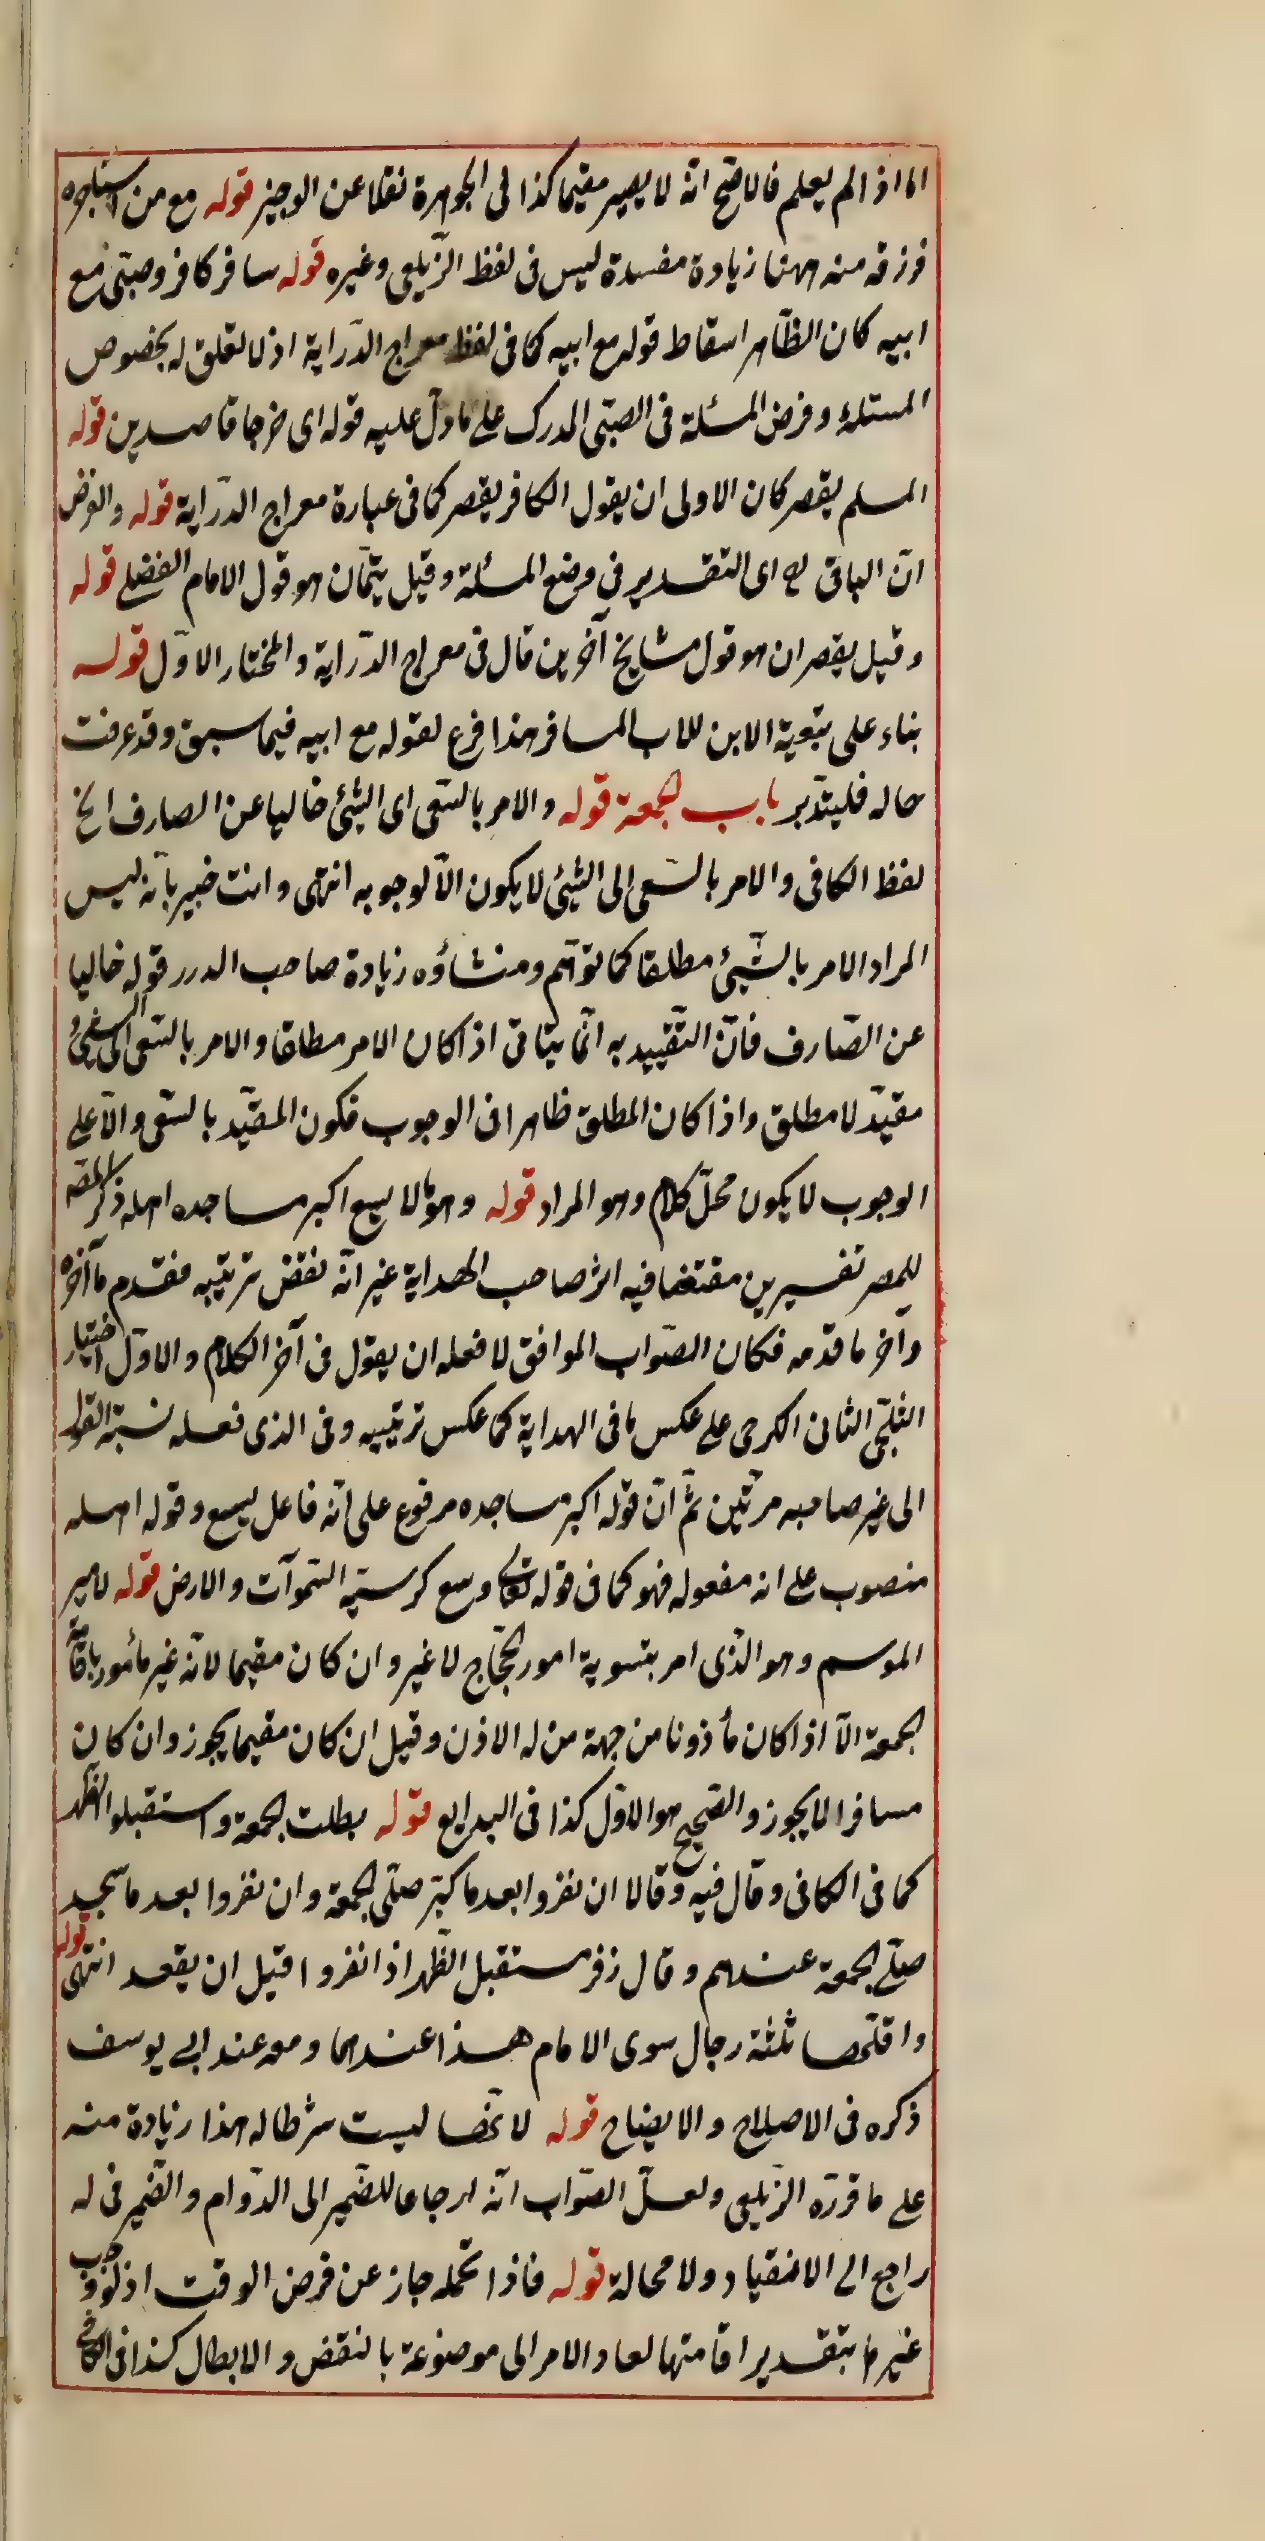 اما اذا لم يعلم فالاصح انه لا يصير مقيما كذا فى الجوهرة نقلا عن الوجيز قوله مع من استأجره
فرزقه منه ههنا زيادة مفسدة ليس فى لفظ الزّيلعى وغيره قوله سافر كافر وصبّى مع
ابيه كان الظّاهر اسقاط قوله مع ابيه كما فى لفظ معراج الدّراية اذ لا تعلق له بخصوص
المسئلة وفرض المسئلة فى الصبّى المدرك على ما دلّ عليه قوله اى خرجا قاصدين قوله
المسلم يقصر كان الاولى ان يقول الكافر يقصر كما فى عبارة معراج الدّراية قوله والفرض
انّ الباقى اى التقدير فى وضع المسئلة وقيل يتمّان هو قول الامام الفضلى قوله
وقيل يقصران هو قول مشايخ آخرين قال فى معراج الدّراية والمختار الاوّل قوله
بناء على تبعية الابن للاب المسافر هذا فرع لقوله مع ابيه فيما سبق وقد عرفت
حاله فليتدّبر باب الجمعة قوله والامر بالسّعى اى الشّئ خاليا عن الصارف الخ
لفظ الكافى والامر بالسّعى الى الشّئ لا يكون الّا لوجوبه انتهى وانت خبير بانّه ليس
المراد الامر بالشّئ مطلقا كما توّهم ومنشاؤه زيادة صاحب الدرر قوله خاليا
عن الصّارف فانّ التّقييد به انّما يتاتى اذا كان الامر مطلقا والامر بالسّعى الى الشئ
مقيّد لا مطلق واذا كان المطلق ظاهرا فى الوجوب فكون المقيّد بالسّعى والّا على
الوجوب لا يكون محلّ كلام وهو المراد قوله وهو ما لا يسع اكبر مساجده اهله ذكر المصّ
للمصر تفسيرين مقتفيا فيه اثر صاحب الهداية غير انّه نقض ترتيبه فقدم ما آخره
وآخر ما قدمه فكان الصّواب الموافق لا فعله ان يقول فى آخر الكلام والاوّل اختيار
الثلجّى الثانى الكرخى على عكس ما فى الهداية كما عكس ترتيبه وفى الذى فعله نسبة القول
الى غير صاحبه مرتّين ثمّ انّ قوله اكبر مساجده مرفوع على انّه فاعل يسع وقوله اهله
منصوب على انه مفعوله فهو كما فى قوله تعالى وسع كرسيّه السّموآت والارض قوله لامير
الموسم وهو الذّى امر بتسوية امور الحجّاج لا غير وان كان مقيما لانّه غير مأمور باقامة
الجمعة الّا اذا كان مأذونا من جهة من له الاذن وقيل ان كان مقيما يجوز وان كان
مسافرا لا يجوز والصّحيح هو الاوّل كذا فى البدايع قوله بطلت الجمعة واستقبلوا الظهر
كما فى الكافى وقال فيه وقالا ان نفروا بعد ما كبّر صلّى الجمعة وان نفروا بعد ما سجد
صلّى الجمعة عندهم وقال زفر مستقبل الظّهر اذا نفروا قبل ان يقعد انتهى قوله
واقلّها ثلثة رجال سوى الامام هذا عندهما ومعه عند ابى يوسف
ذكره فى الاصلاح والايضاح قوله لانّها ليست شرطا له هذا زيادة منه
على ما قرّره الزّيلعى ولعلّ الصّواب انّه ارجاعا للضّمير الى الدّوام والضّمير فى له
راجع الى الانعقاد ولا محالة قوله فاذا تحمله جاز عن فرض الوقت اذ لو وجب
غيرها بتقدير اقامتها لعاد الامر الى موضوعه بالنقض والابطال كذا فى الكافى